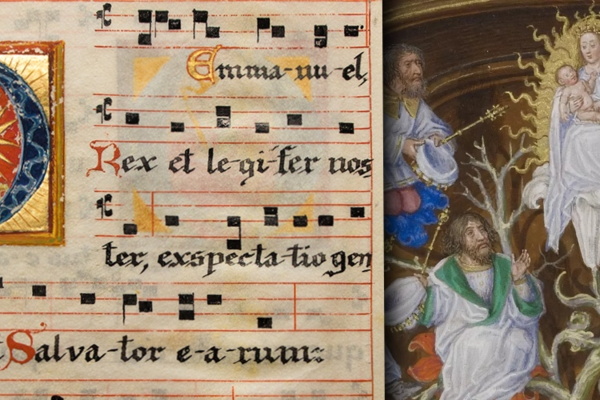 Emma-nu-el,
Rex et le-gi-fer nos
ter, exspecta-tio gen
Salva-tor e-a-rum: